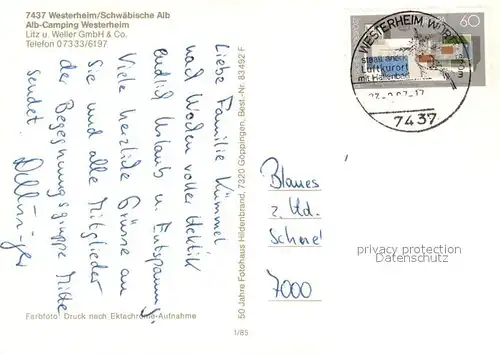 7437 Westerheim/Schwäbische Alb
Alb-Camping Westerheim
Litz u. Weller GmbH & Co.
Telefon 07333/6197
Liebe Familie Kümmel
nach Wochen voller Hektik
endlich Urlaub u. Entspannung.
Viele herzliche Grüsse an
Sie und alle Mitglieder
der Begegnungsgruppe Mitte
sendet
Farbfoto: Druck nach Ektachrome-Aufnahme
1/85
50 Jahre Fotohaus Hildenbrand, 7320 Göppingen, Best.-Nr. 83492 F
60
WESTERHEIM, WÜRTT
staatl anerk
Luftkurort
mit Hallenbad
7437
Blaues
z. Hd.
7000
privacy protection
Datenschutz